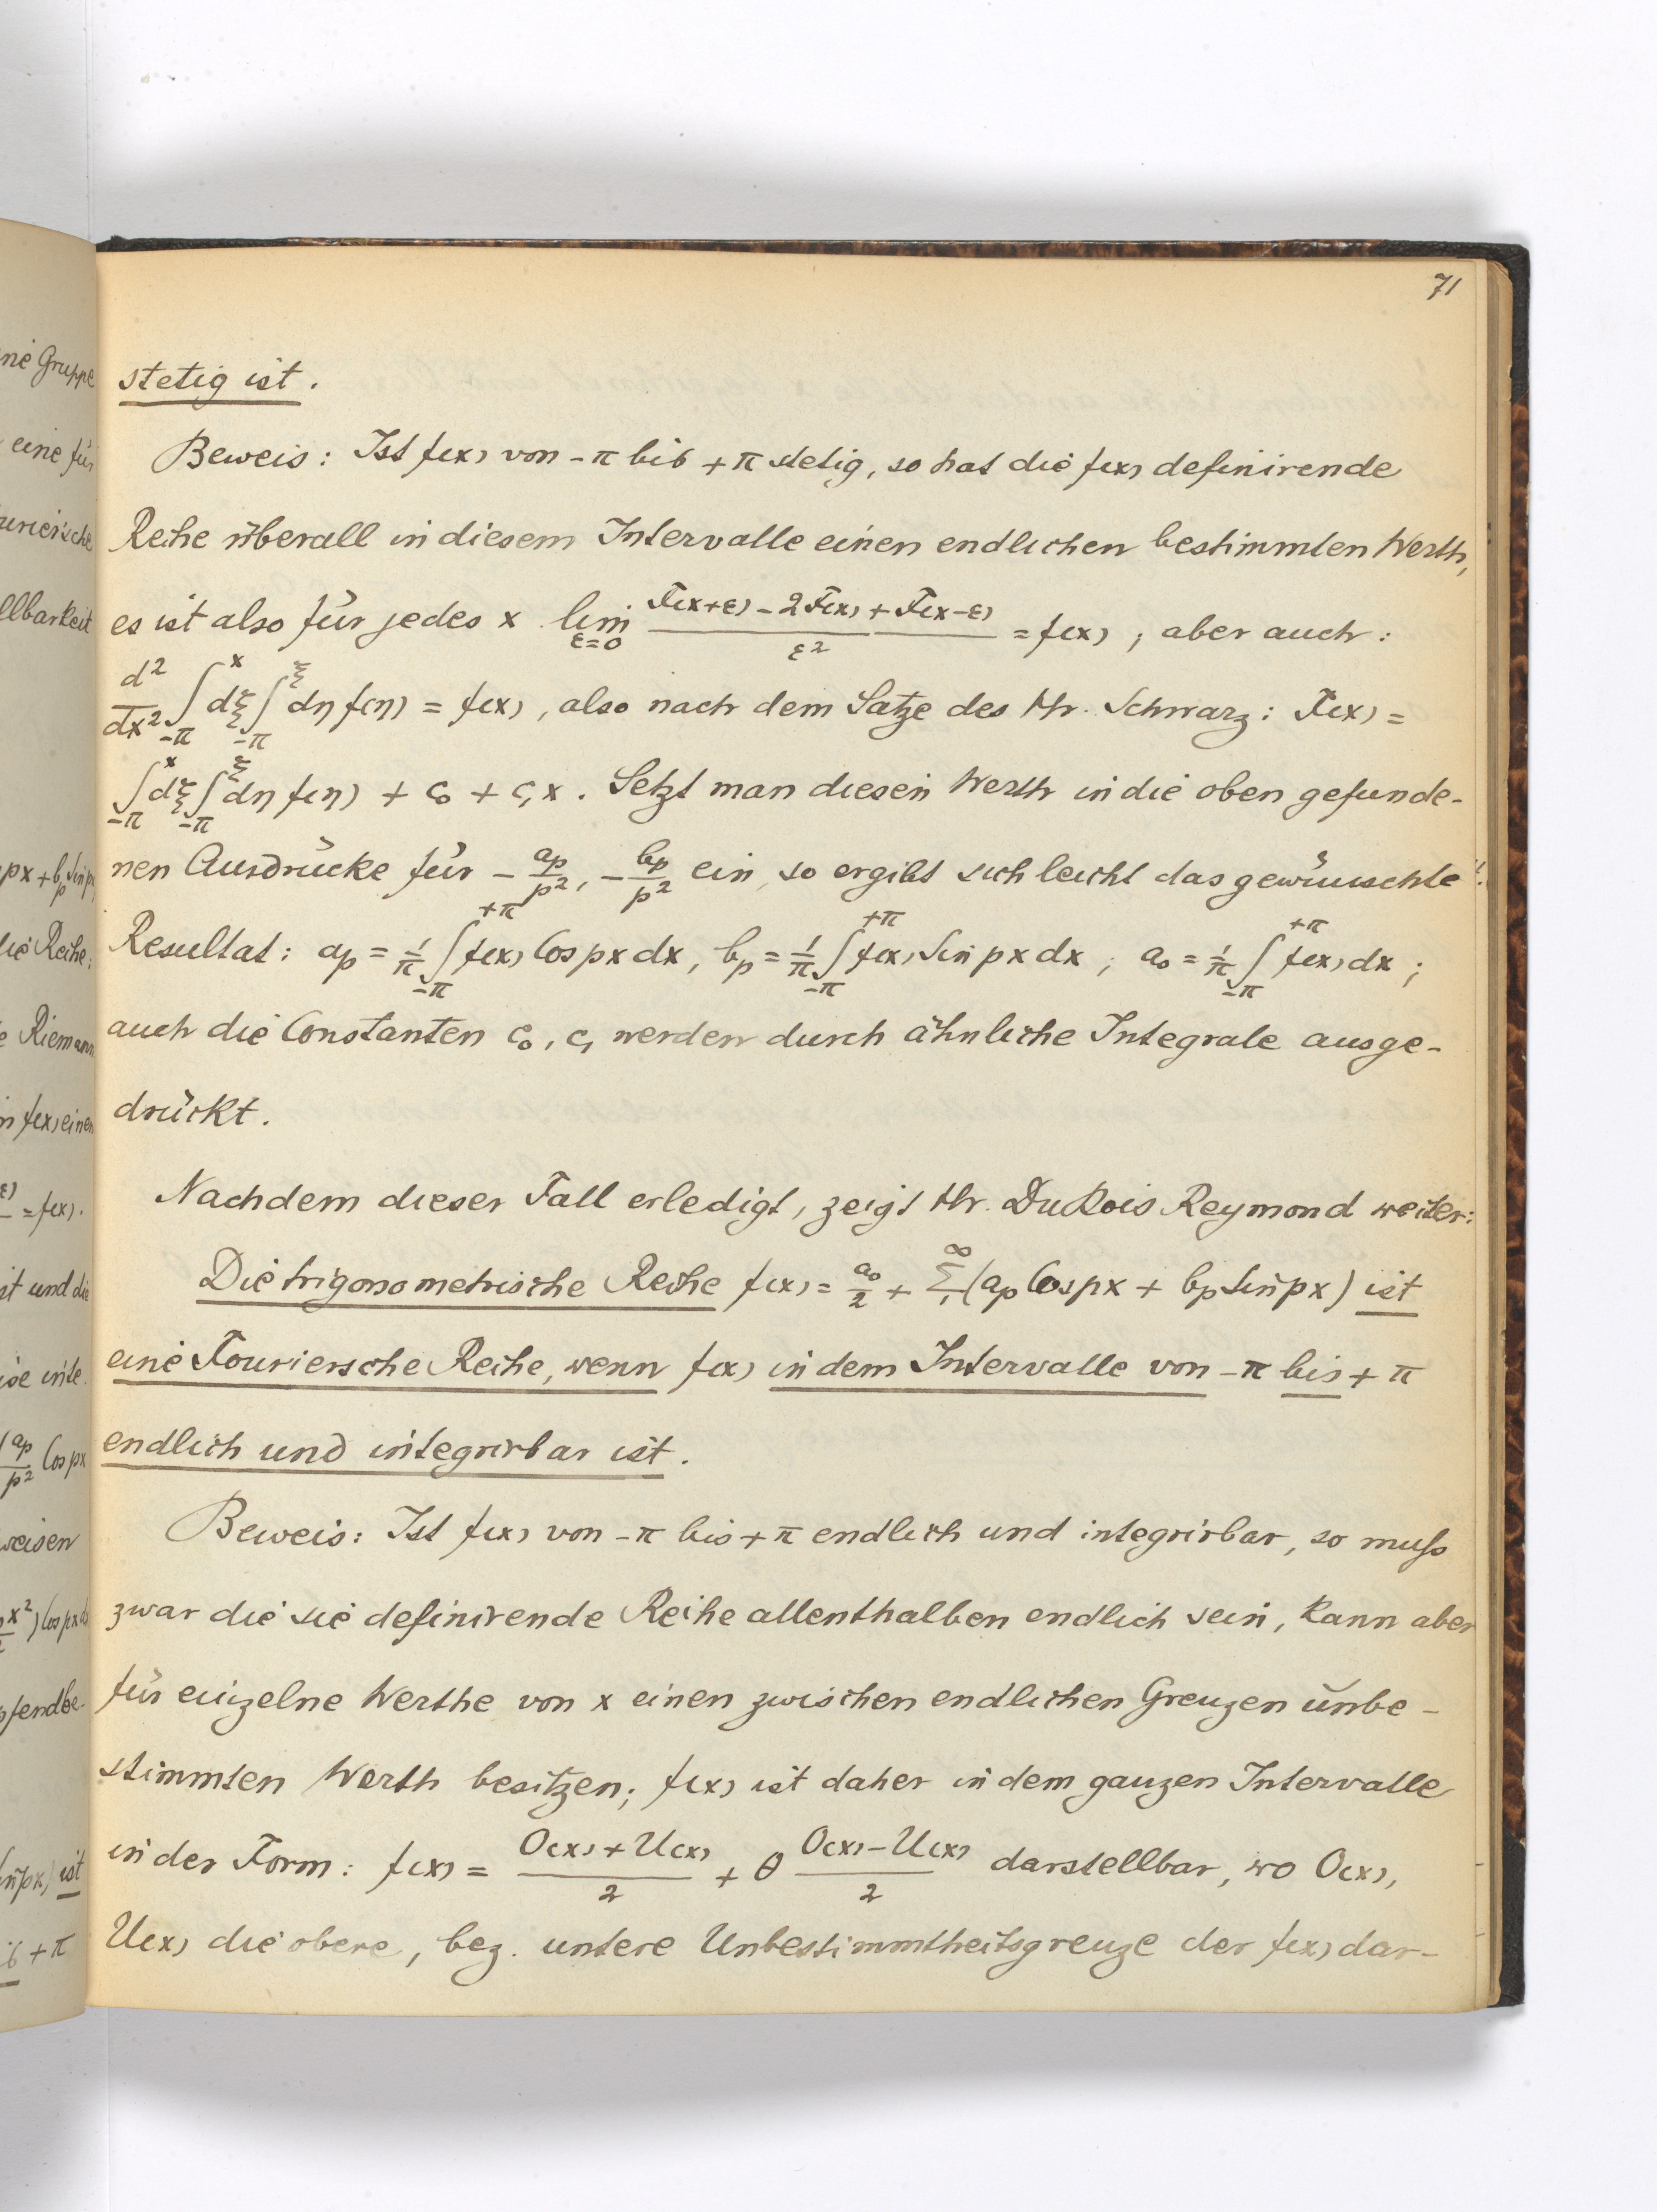 71
stetig ist.
Beweis: Ist f(x) von -π bis +π stetig, so hat die f(x) definirende
Reihe überall in diesem Intervalle einen endlichen bestimmten Werth,
es ist also für jedes x lim_{ε=0} (F(x+ε) - 2F(x) + F(x-ε))/ε² = f(x); aber auch:
d²/dx² ∫_{-π}^{x} dξ ∫_{-π}^{ξ} dη f(η) = f(x), also nach dem Satze des Hr. Schwarz: F(x) =
∫_{-π}^{x} dξ ∫_{-π}^{ξ} dη f(η) + c₀ + c₁x. Setzt man diesen Werth in die oben gefunde-
nen Ausdrücke für - a_p/p², - b_p/p² ein, so ergibt sich leicht das gewünschte
Resultat: a_p = 1/π ∫_{-π}^{+π} f(x) Cos px dx, b_p = 1/π ∫_{-π}^{+π} f(x) Sin px dx; a₀ = 1/π ∫_{-π}^{+π} f(x) dx;
auch die Constanten c₀, c₁ werden durch ähnliche Integrale ausge-
drückt.
Nachdem dieser Fall erledigt, zeigt Hr. Du Bois Reymond weiter:
Die trigonometrische Reihe f(x) = a₀/2 + Σ_{1}^{∞} (a_p Cos px + b_p Sin px) ist
eine Fouriersche Reihe, wenn f(x) in dem Intervalle von -π bis +π
endlich und integrirbar ist.
Beweis: Ist f(x) von -π bis +π endlich und integrirbar, so muß
zwar die sie definirende Reihe allenthalben endlich sein, kann aber
für einzelne Werthe von x einen zwischen endlichen Grenzen unbe-
stimmten Werth besitzen; f(x) ist daher in dem ganzen Intervalle
in der Form: f(x) = (O(x) + U(x))/2 + θ (O(x) - U(x))/2 darstellbar, wo O(x),
U(x) die obere, bez. untere Unbestimmtheitsgrenze der f(x) dar-